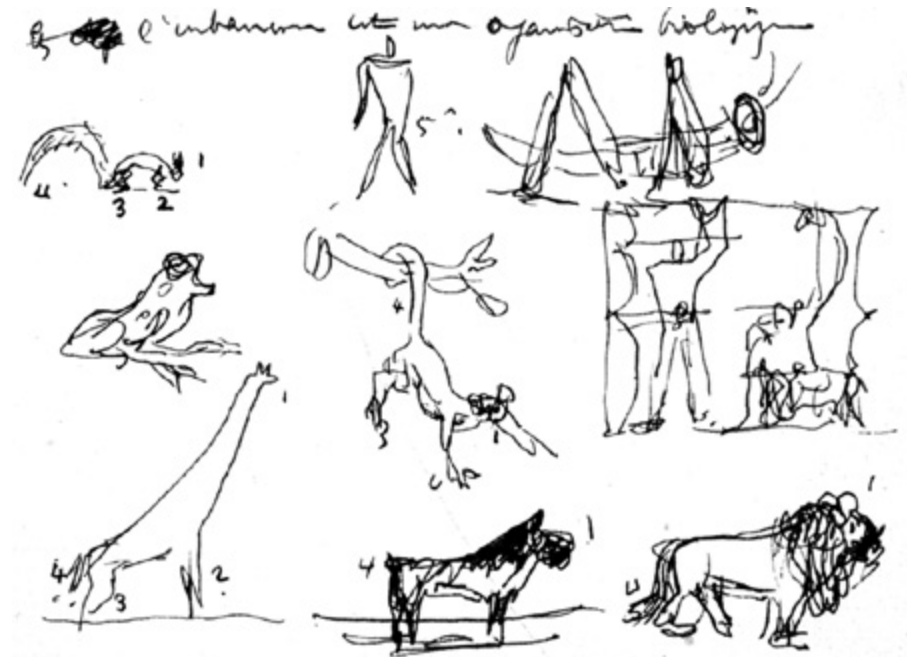 l'urbanisme est une organisation biologique
5
1
4
3 2
4
3
1
1
4
3
2
1
4
1
4